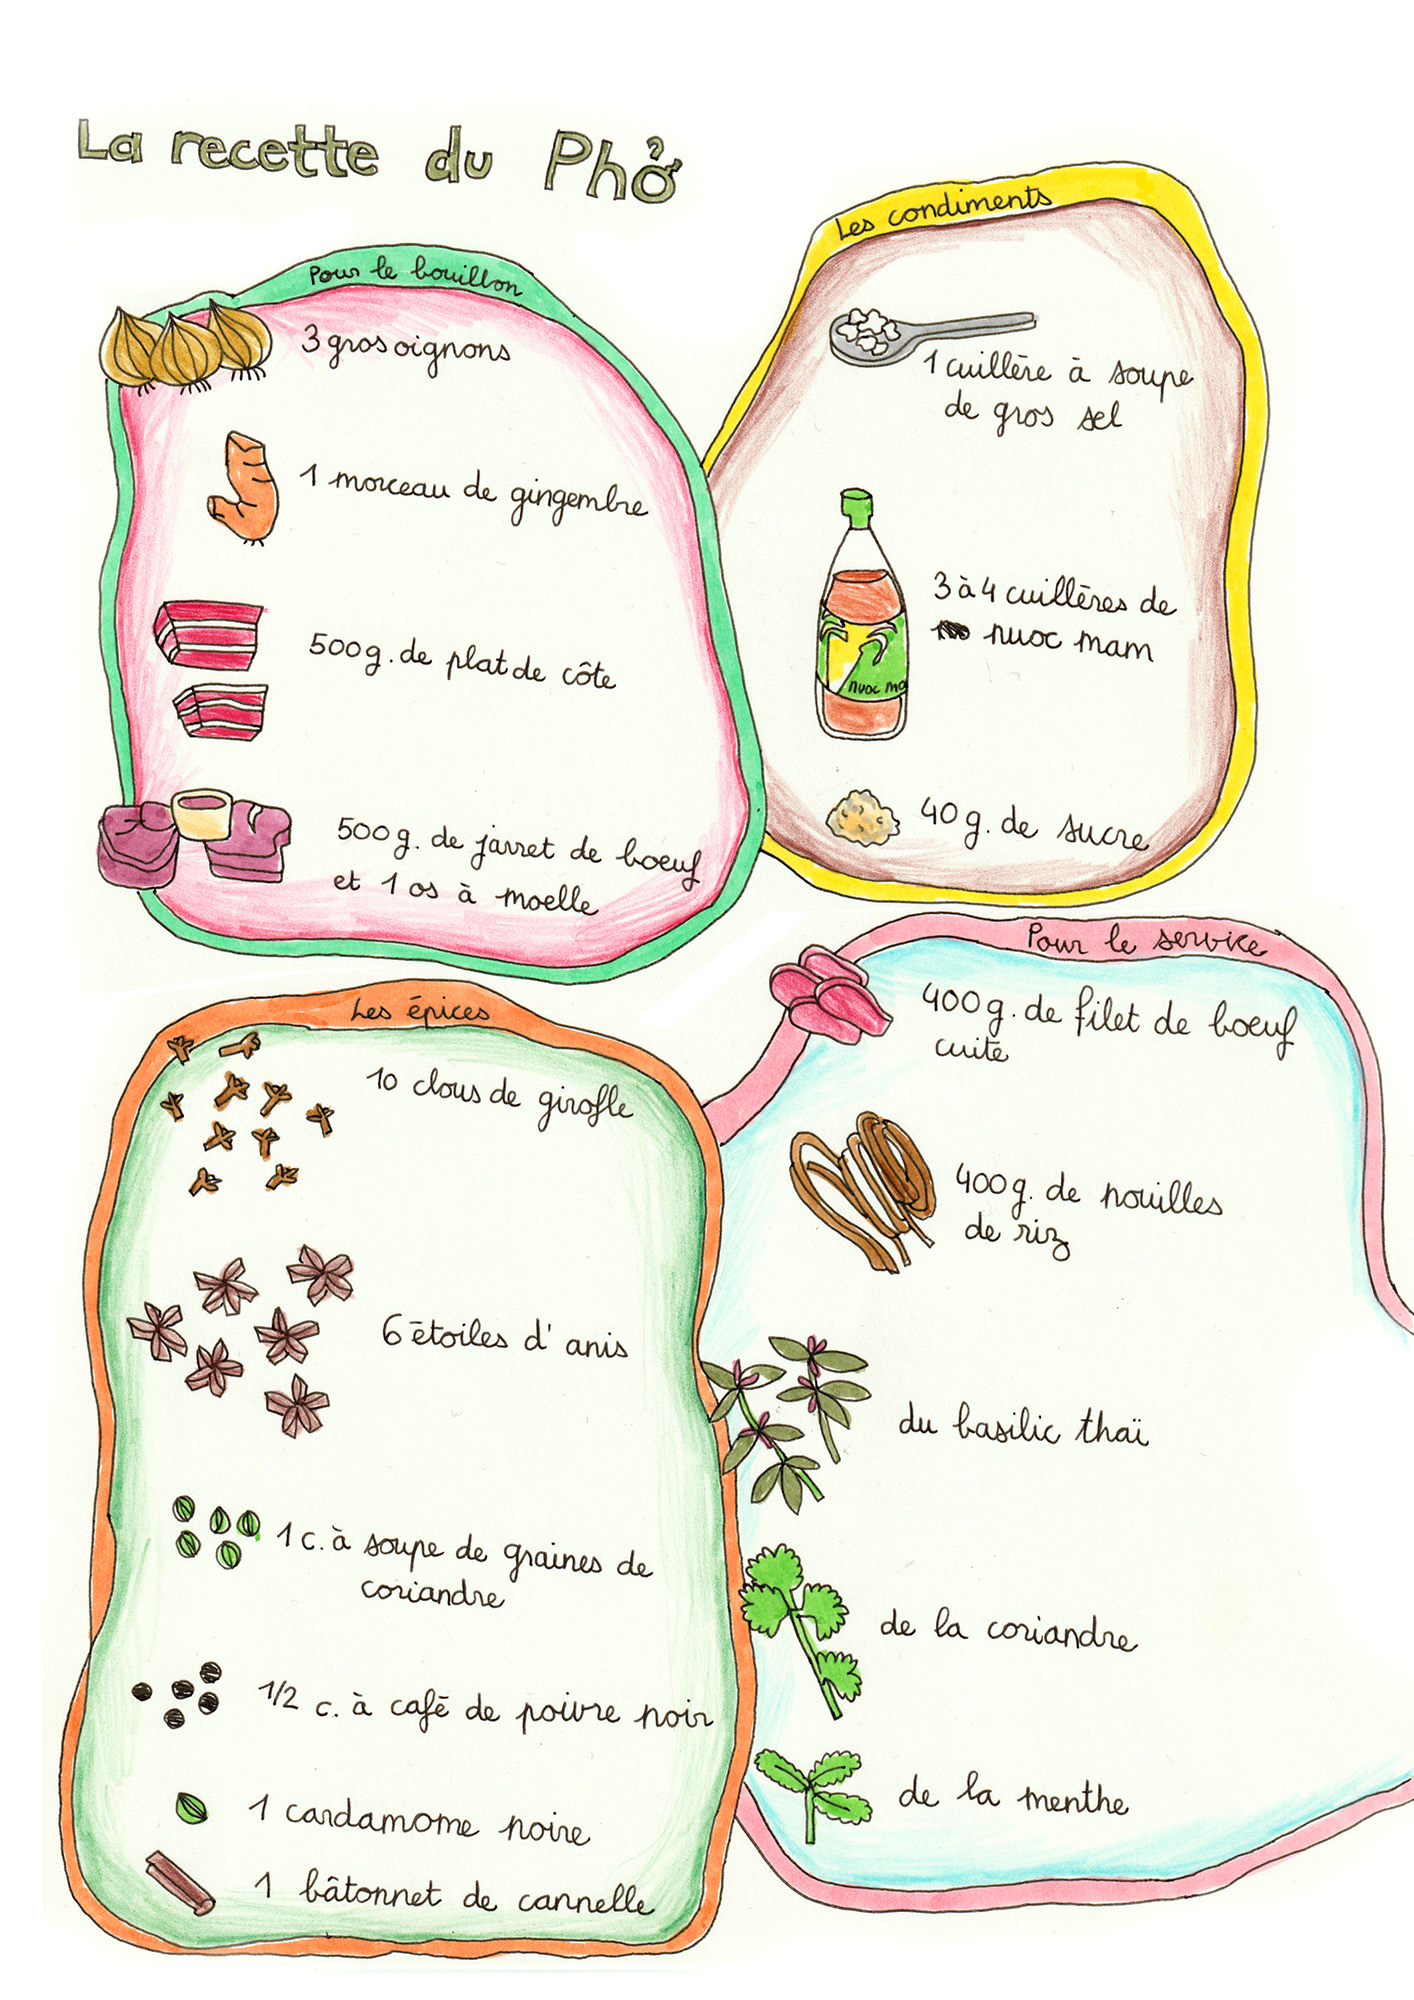 La recette du Phở
Pour le bouillon
3 gros oignons
1 morceau de gingembre
500g. de plat de côte
500g. de jarret de boeuf
et 1 os à moelle
Les condiments
1 cuillère à soupe
de gros sel
3 à 4 cuillères de
nuoc mam
nuoc ma
40g. de sucre
Les épices
10 clous de girofle
6 étoiles d' anis
1 c. à soupe de graines de
coriandre
1/2 c. à café de poivre noir
1 cardamome noire
1 bâtonnet de cannelle
Pour le service
400g. de filet de boeuf
cuite
400g. de nouilles
de riz
du basilic thaï
de la coriandre
de la menthe